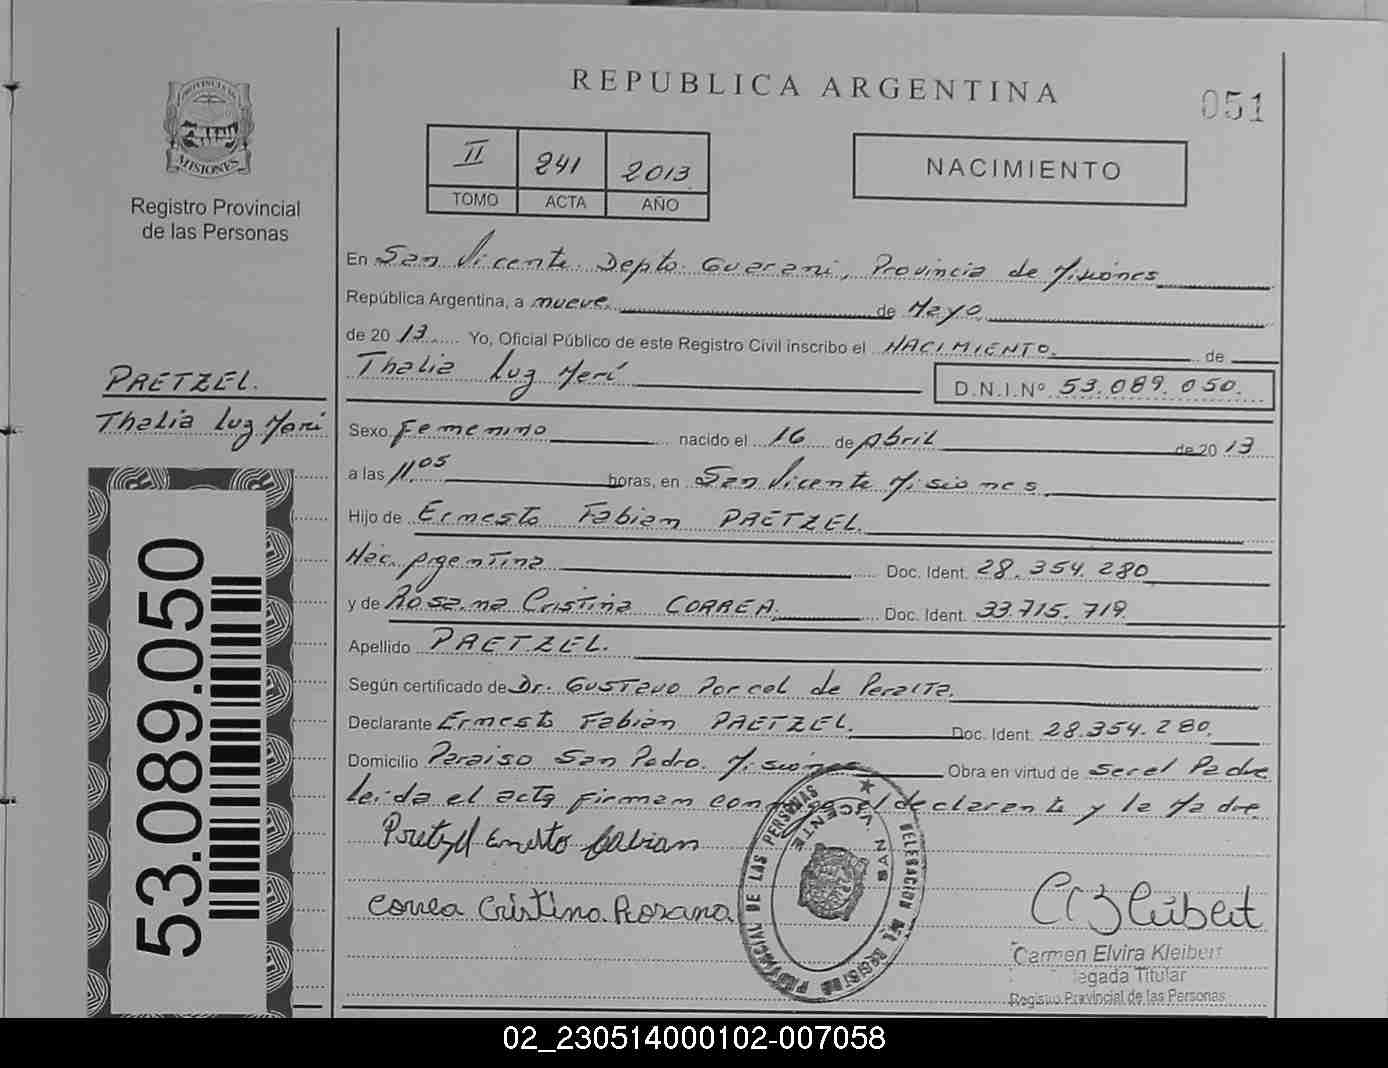 REPUBLICA ARGENTINA
051
PROVINCIA DE
MISIONES
Registro Provincial
de las Personas
II 241 2013
TOMO ACTA AÑO
NACIMIENTO
En San Vicente Depto. Guarani, Provincia de Misiones
República Argentina, a nueve de Mayo
de 20 13 Yo, Oficial Público de este Registro Civil inscribo el NACIMIENTO. de
Thalia Luz Merí
D.N.I.Nº 53.089.050.
PRETZEL.
Thalia Luz Meri
Sexo Femenino nacido el 16 de Abril de 20 13
a las 11.05 horas, en San Vicente Misiones
Hijo de Ernesto Fabian PRETZEL.
Nac. Argentina Doc. Ident. 28.354.280
y de Rosana Cristina CORREA. Doc. Ident. 33.715.719.
Apellido PRETZEL.
Según certificado de Dr. Gustavo Porcel de Peralta.
Declarante Ernesto Fabian PRETZEL. Doc. Ident. 28.354.280.
Domicilio Paraiso San Pedro. Misiones Obra en virtud de ser el Padre
Leida el acta firman conmigo el declarante y la Madre.
Pretzel Ernesto Fabian
Correa Cristina Rosana
DELEGACION DEL REGISTRO PROVINCIAL DE LAS PERSONAS
SAN VICENTE
Carmen Elvira Kleibert
egada Titular
Registro Provincial de las Personas
53.089.050
02_230514000102-007058